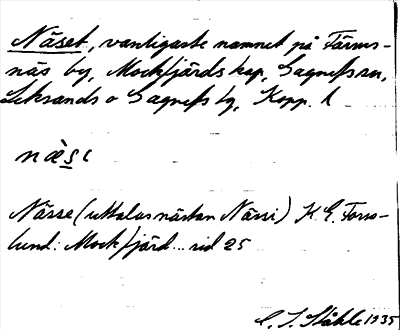 Näset, vanligaste namnet på Färms-
näs by, Mockfjärds kap, Gagnefs sn,
Leksands o Gagnefs tg, Kopp. l
næ̀sı
Nässe (uttalas nästan Nässi) K. E. Forss-
lund: Mockfjärd... sid 25
C. I. Ståhle 1935